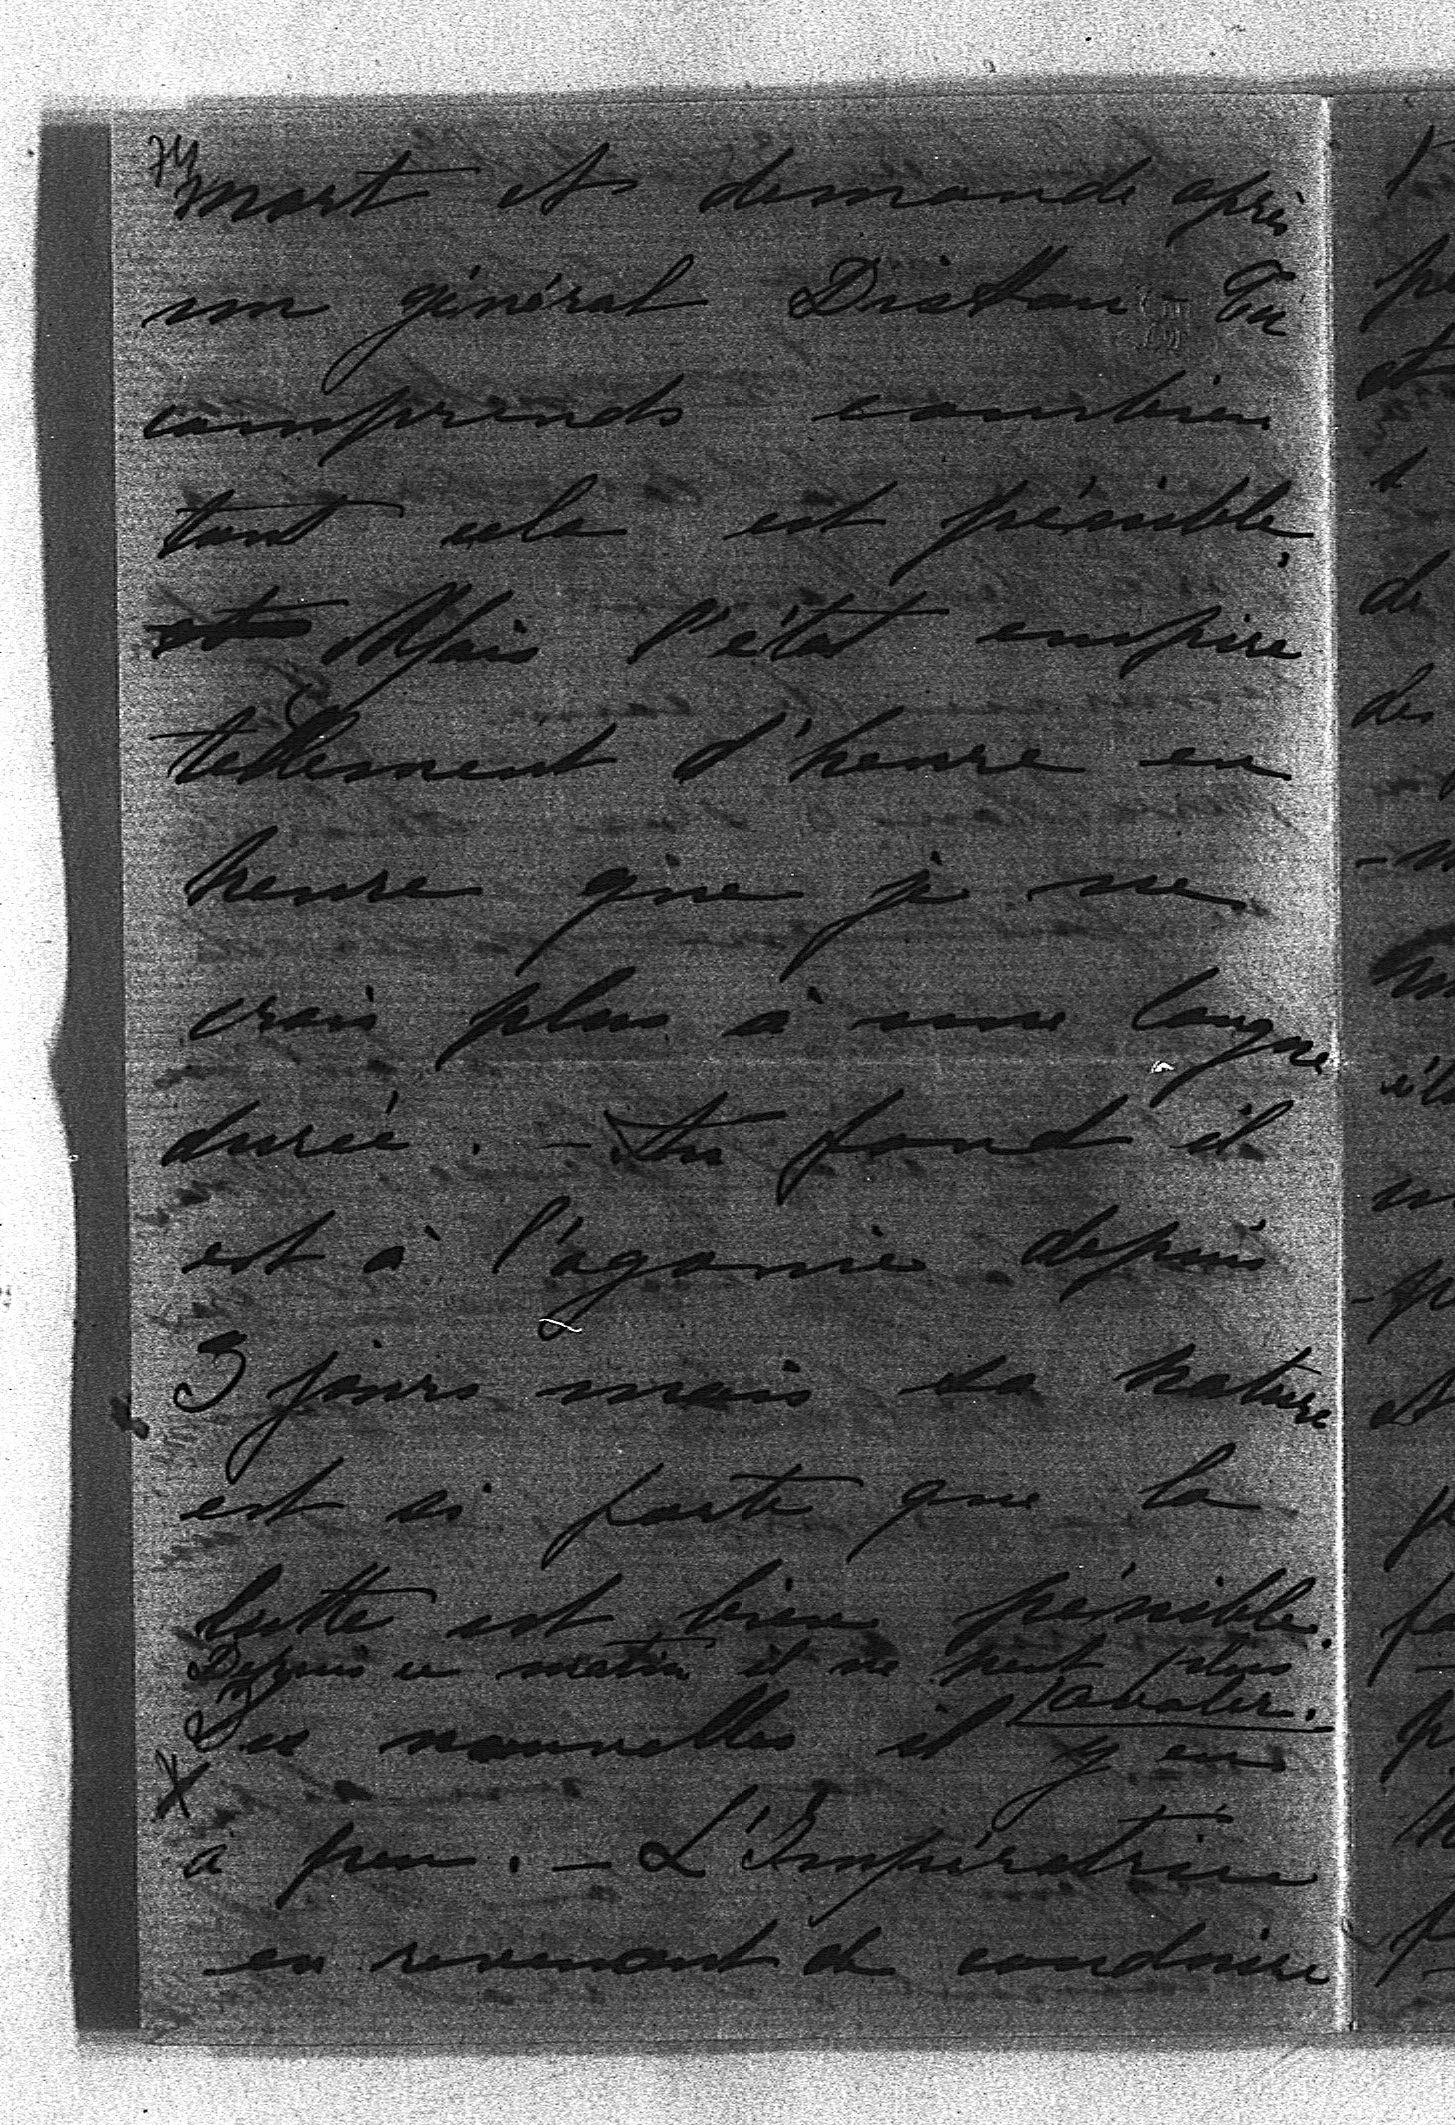 74
mort et demande après
un général Distou - Tu
comprends combien
tout cela est pénible,
et Mais l'état empire
tellement d'heure en
heure que je ne
crois plus à une longue
durée. - Au fond il
est à l'agonie depuis
3 jours mais sa nature
est si forte que la
lutte est bien pénible.
Depuis ce matin il ne peut plus
avaler.
De nouvelles il y en
a peu. - L'Impératrice
en revenant de conduire